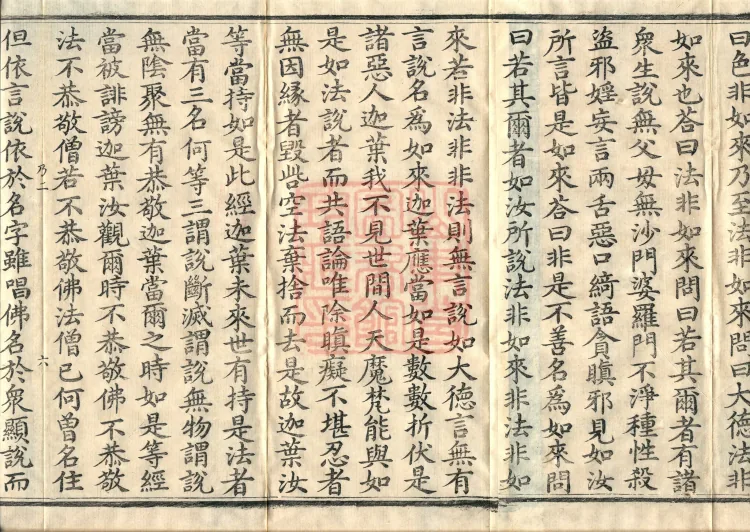 曰色非如來乃至法非如來問曰大德法非
如來也荅曰法非如來問曰若其爾者有諸
衆生說無父母無沙門婆羅門不淨種性殺
盜邪婬妄言兩舌惡口綺語貪瞋邪見如汝
所言皆是如來荅曰非是不善名為如來問
曰若其爾者如汝所說法非如來非法非如
來若非法非非法則無言說如大德言無有
言說名為如來迦葉應當如是數數折伏是
諸惡人迦葉我不見世間人天魔梵能與如
是如法說者而共語論唯除瞋癡不堪忍者
無因緣者毀呰空法棄捨而去是故迦葉汝
等當持如是此經迦葉未來世有持是法者
當有三名何等三謂說斷滅謂說無物謂說
無陰聚無有恭敬迦葉當爾之時如是等經
當被誹謗迦葉汝觀爾時不恭敬佛不恭敬
法不恭敬僧若不恭敬佛法僧已何曾名住
乃二 六
但依言說依於名字雖唱佛名於衆顯說而